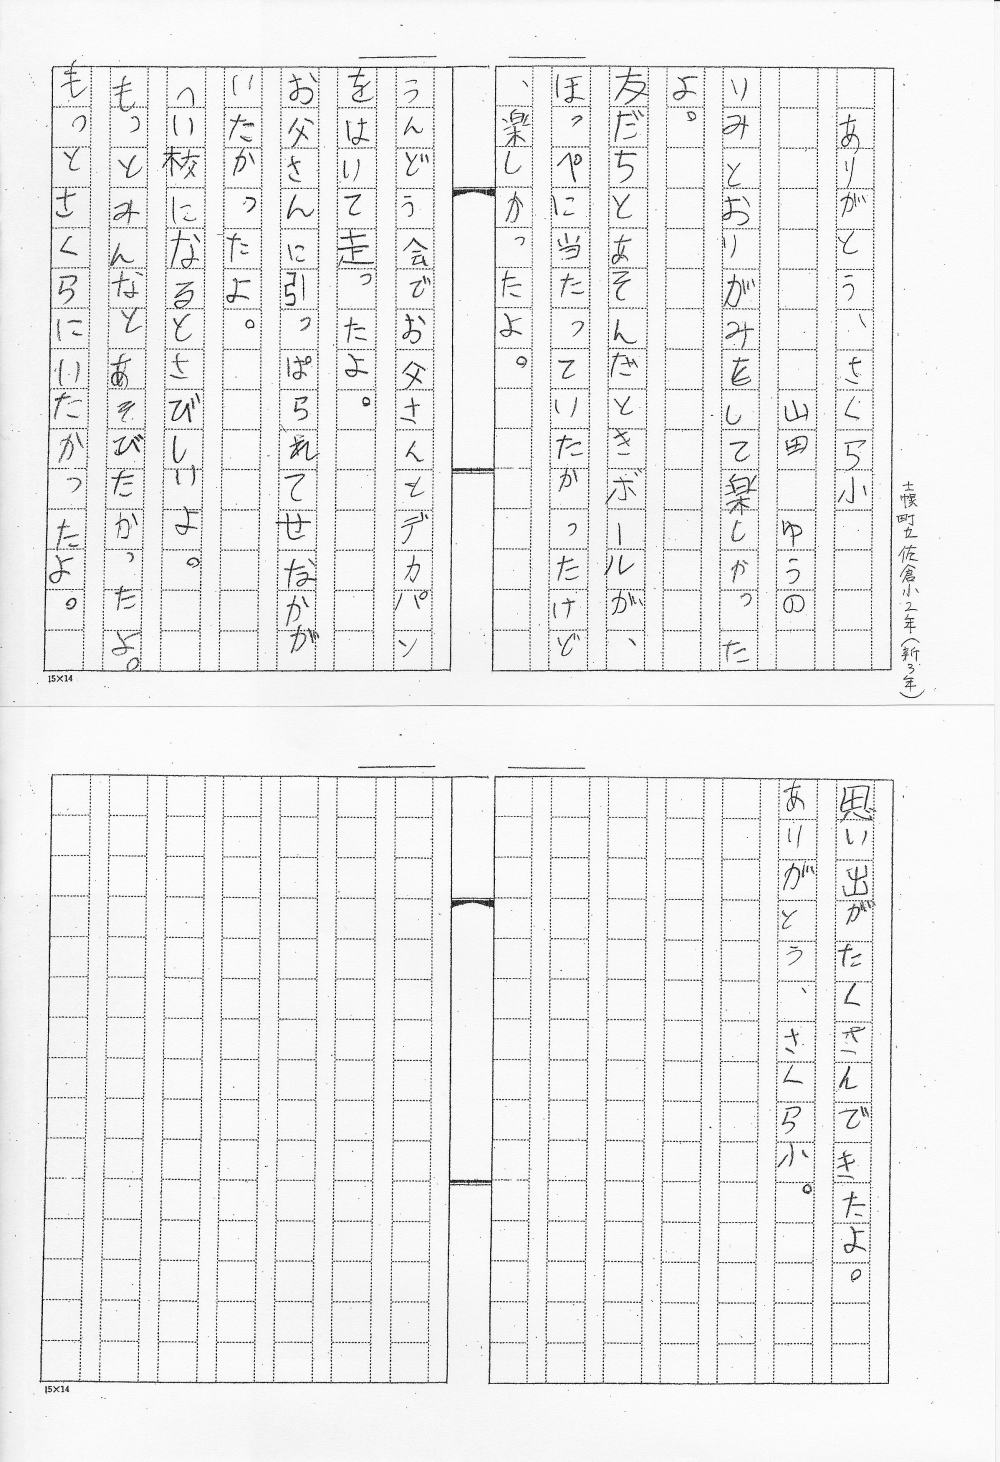 士幌町立佐倉小2年(新3年)
ありがとう、さくら小
山田 ゆうの
りみとおりがみをして楽しかった
よ。
友だちとあそんだときボールが、
ほっぺに当たっていたかったけど
、楽しかったよ。
うんどう会でお父さんとデカパン
をはいて走ったよ。
お父さんに引っぱられてせなかが
いたかったよ。
へい校になるとさびしいよ。
もっとみんなとあそびたかったよ。
もっとさくらにいたかったよ。
15×14
思い出がたくさんできたよ。
ありがとう、さくら小。
15×14